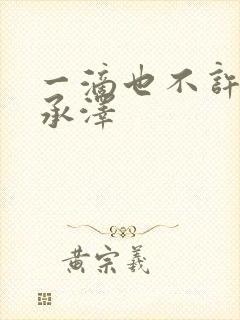 一滴也不許
承澤
黄宗羲